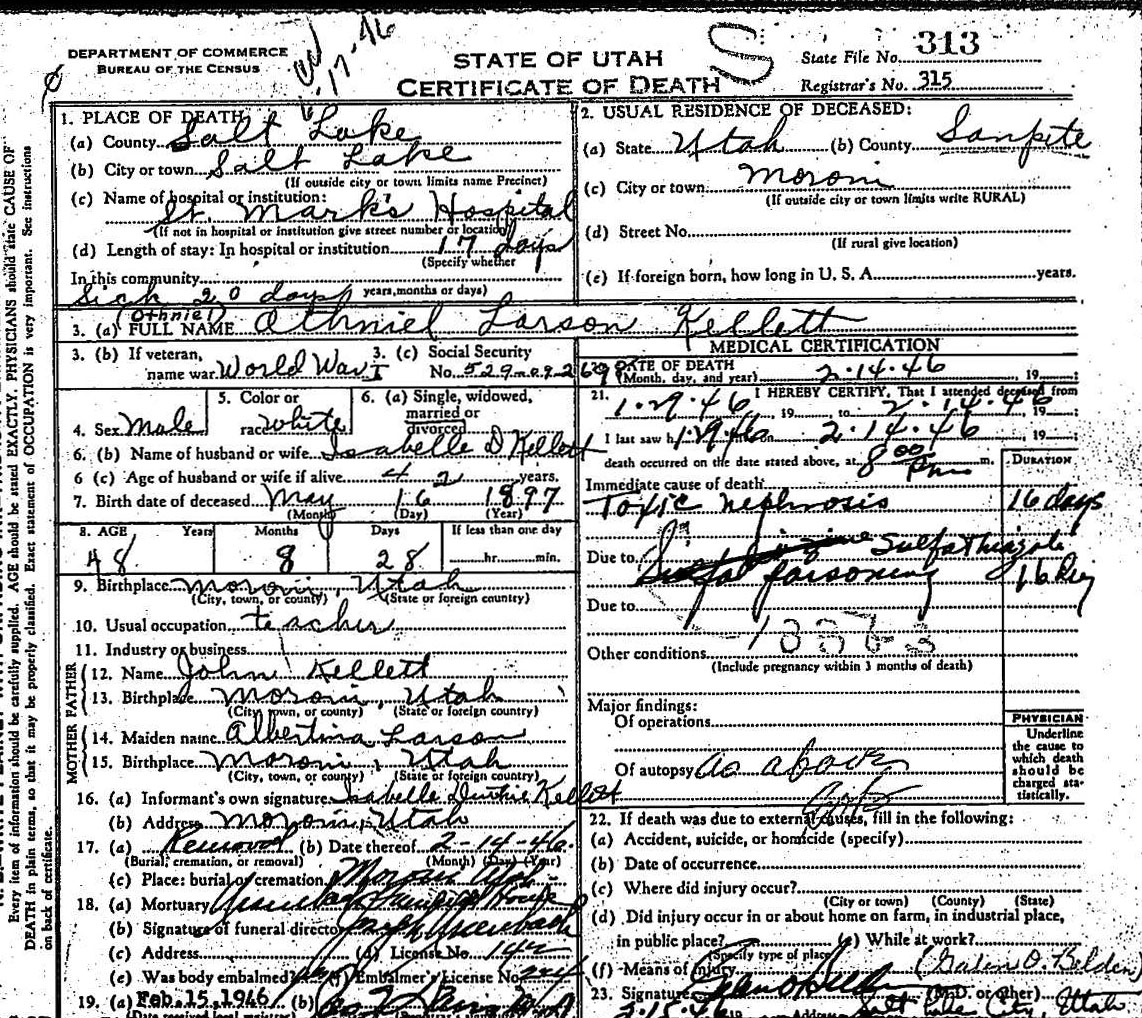 DEPARTMENT OF COMMERCE
BUREAU OF THE CENSUS
17-46
STATE OF UTAH
CERTIFICATE OF DEATH
S
State File No. 313
Registrar's No. 315
Every item of information should be carefully supplied. AGE should be stated EXACTLY. PHYSICIANS should state CAUSE OF
DEATH in plain terms, so that it may be properly classified. Exact statement of OCCUPATION is very important. See instructions
on back of certificate.
1. PLACE OF DEATH
(a) County Salt Lake
(b) City or town Salt Lake
(If outside city or town limits name Precinct)
(c) Name of hospital or institution:
St. Mark's Hospital
(If not in hospital or institution give street number or location)
(d) Length of stay: In hospital or institution 17 days
(Specify whether
In this community
Sick 20 days years, months or days)
2. USUAL RESIDENCE OF DECEASED:
(a) State Utah (b) County Sanpete
(c) City or town Moroni
(If outside city or town limits write RURAL)
(d) Street No.
(If rural give location)
(e) If foreign born, how long in U. S. A. years.
(Othniel)
3. (a) FULL NAME Othniel Larson Kellett
3. (b) If veteran, name war World War I
3. (c) Social Security No. 529-09-2698
4. Sex Male
5. Color or race white
6. (a) Single, widowed, married or divorced
6. (b) Name of husband or wife Isabelle D Kellett
6 (c) Age of husband or wife if alive 42 years.
7. Birth date of deceased May 16 1897
(Month) (Day) (Year)
8. AGE Years Months Days If less than one day
48 8 28 hr. min.
9. Birthplace Moroni, Utah
(City, town, or county) (State or foreign country)
10. Usual occupation teacher
11. Industry or business
FATHER
12. Name John Kellett
13. Birthplace Moroni, Utah
(City, town, or county) (State or foreign country)
MOTHER
14. Maiden name Albertina Larson
15. Birthplace Moroni, Utah
(City, town, or county) (State or foreign country)
16. (a) Informant's own signature Isabelle Kellett
(b) Address Moroni, Utah
17. (a) Removal (b) Date thereof 2-14-46.
(Burial, cremation, or removal) (Month) (Day) (Year)
(c) Place: burial or cremation Moroni Utah
18. (a) Mortuary
(b) Signature of funeral director
(c) Address (d) License No. 142
(e) Was body embalmed? (f) Embalmer's License No.
19. (a) Feb 15 1946 (b)
MEDICAL CERTIFICATION
DATE OF DEATH
(Month, day, and year) 2-14-46, 19
21. I HEREBY CERTIFY, That I attended deceased from
1-29-46, 19, to 2-14-46 19
I last saw h 2-14-46, 19
death occurred on the date stated above, at 8 00 Pm m.
DURATION
Immediate cause of death
Toxic nephrosis 16 days
Due to Sulfathiazole
poisoning 16
Due to
Other conditions
(Include pregnancy within 3 months of death)
Major findings:
Of operations
Of autopsy as above
PHYSICIAN
Underline
the cause to
which death
should be
charged sta-
tistically.
22. If death was due to external causes, fill in the following:
(a) Accident, suicide, or homicide (specify)
(b) Date of occurrence
(c) Where did injury occur?
(City or town) (County) (State)
(d) Did injury occur in or about home on farm, in industrial place,
in public place? (e) While at work?
(Specify type of place)
(f) Means of injury (Galen O. Belden)
23. Signature (M.D. or other)
2-15-46 19 Address Salt Lake City, Utah